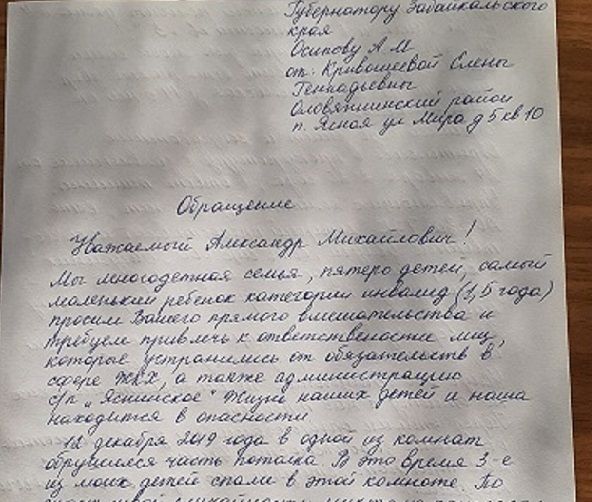 Губернатору Забайкальского
края
Осипову А М
от. Кривошеевой Елены
Геннадьевны
Оловяннинский район
п. Ясная ул Мира д 5 кв 10
Обращение
Уважаемый Александр Михайлович!
Мы многодетная семья, пятеро детей, самый
маленький ребенок категории инвалид (1,5 года)
просим Вашего прямого вмешательства и
требуем привлечь к ответствености лиц,
которые устранились от обязательств в
сфере ЖКХ, а также администрацию
с/п „Яснинское" Жизнь наших детей и наша
находится в опасности
12 декабря 2019 года в одной из комнат
обрушился часть потолка. В это время 3-е
из моих детей спали в этой комнате. По